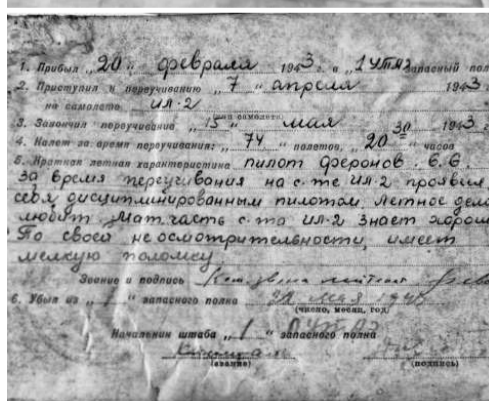 1. Прибыл „20" февраля 1943 г. в „1 УТАЗ запасный пол
2. Приступил к переучиванию „7" апреля 1943 г.
на самолете ИЛ-2
(тип самолета)
3. Закончил переучивание „15" мая 1943 г.
4. Налет за время переучивания: „74" полетов, „20 30" часов
5. Краткая летная характеристика пилот Феронов. В.В.
За время переучивания на с-те ИЛ-2 проявил
себя дисциплинированным пилотом. Летное дело
любит. Мат.часть с-та ИЛ-2 знает хорош
По своей неосмотрительности, имеет
мелкую поломку
Звание и подпись Ком. звена лейтенант
6. Убыл из „1" запасного полка мая 1943
(число, месяц, год)
Начальник штаба „1" запасного полка
(звание) (подпись)